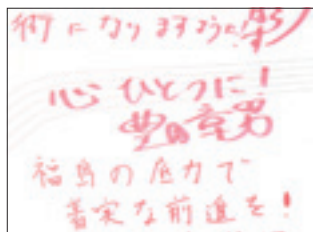 術になりますように
心ひとつに!
福島の底力で
着実な前進を!